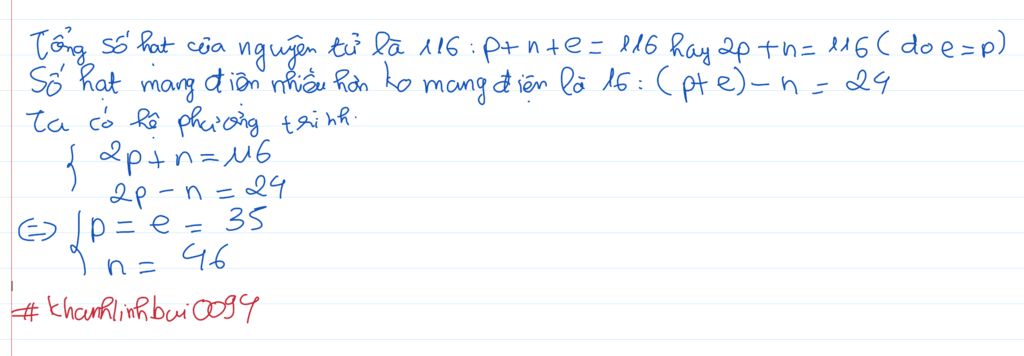 Tổng số hạt của nguyên tử là 116 : p + n + e = 116 hay 2p + n = 116 ( do e = p)
Số hạt mang điện nhiều hơn ko mang điện là 16 : (p + e) - n = 24
Ta có hệ phương trình.
{ 2p + n = 116
2p - n = 24
<=> { p = e = 35
n = 46
#khanhlinhbui0094